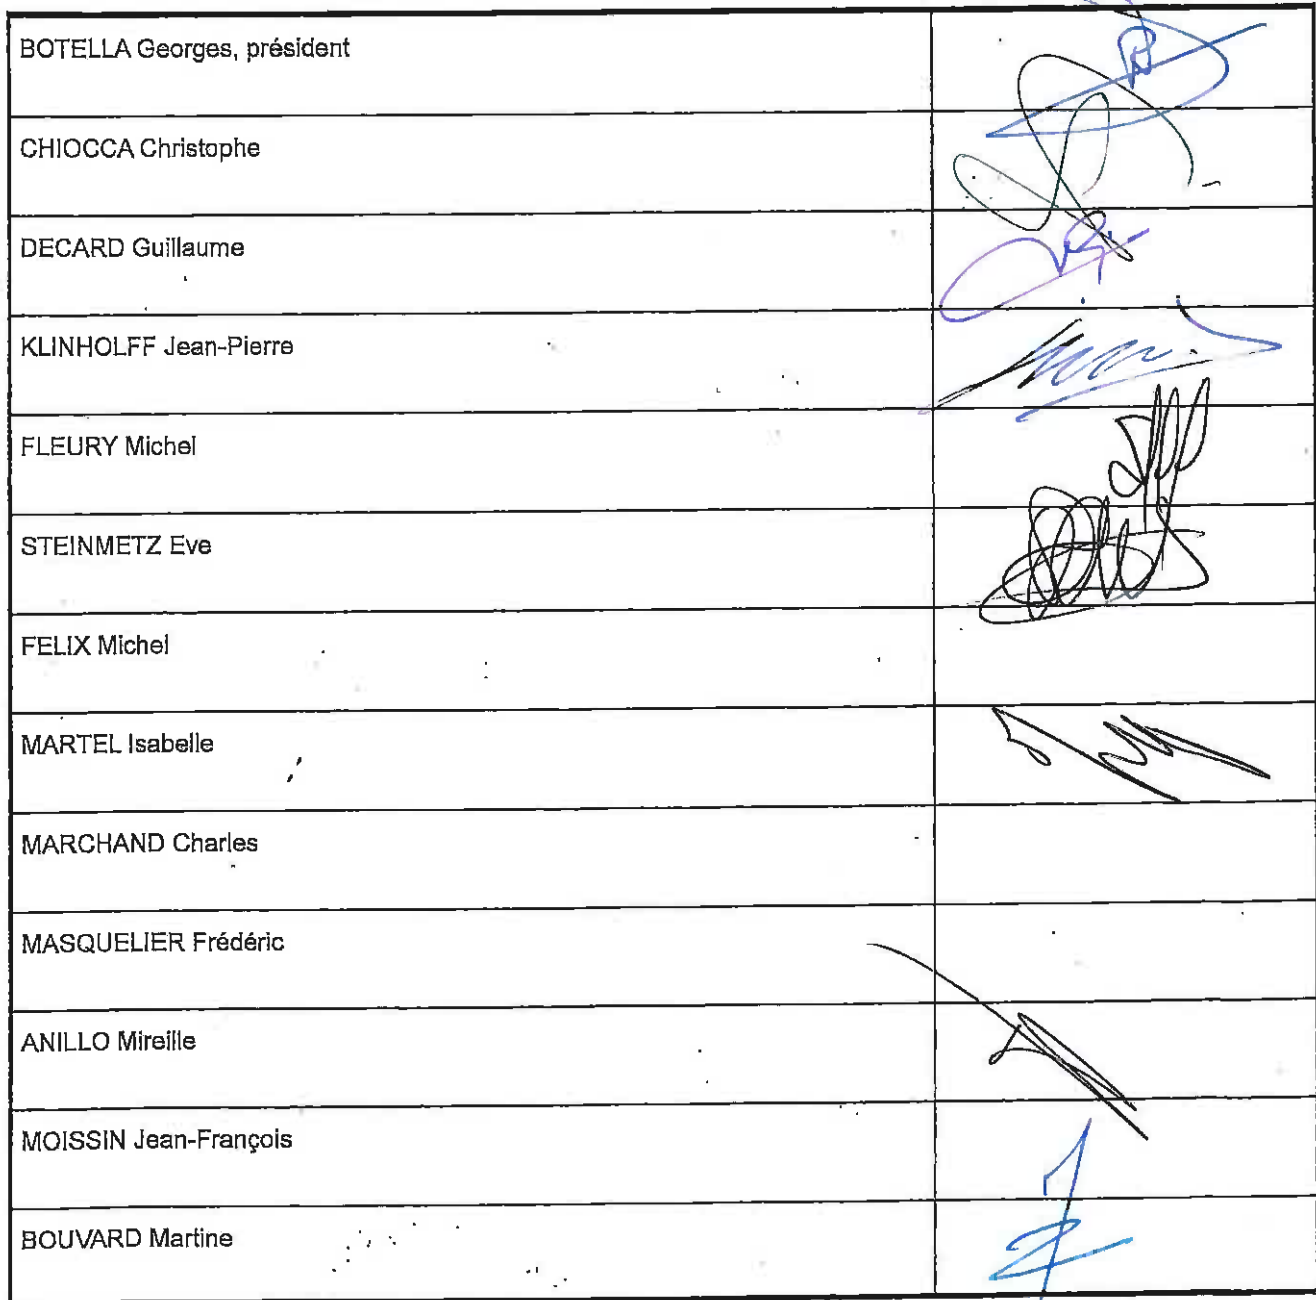 BOTELLA Georges, président
CHIOCCA Christophe
DECARD Guillaume
KLINHOLFF Jean-Pierre
FLEURY Michel
STEINMETZ Eve
FELIX Michel
MARTEL Isabelle
MARCHAND Charles
MASQUELIER Frédéric
ANILLO Mireille
MOISSIN Jean-François
BOUVARD Martine